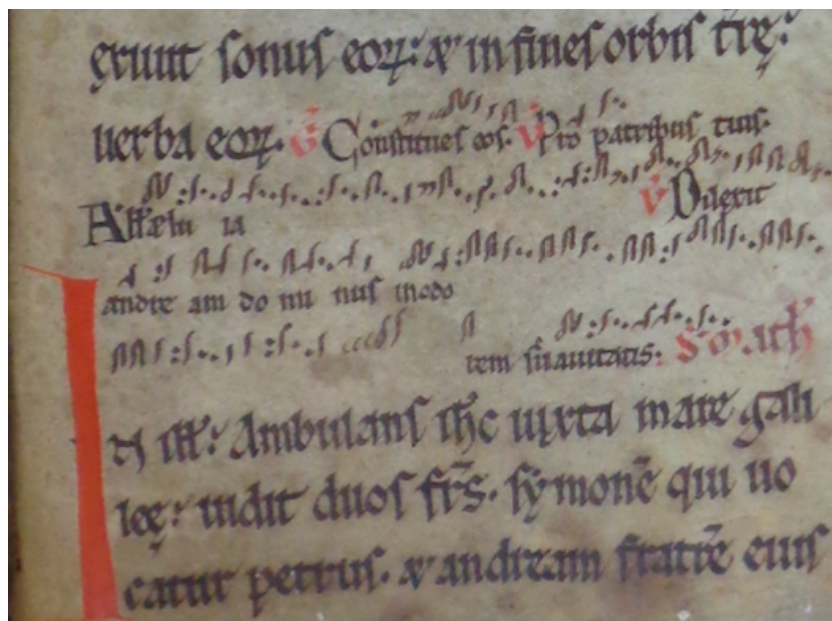 erunt sonus eoꝝ: & in fines orbis tr̄ę:
uerba eoꝝ. V̄ Constitues eos. V̄ Pro patribus tuis.
Alleluia V̄ Dilexit
andre am do mi nus in odo
rem suauitatis: S̄ Math
In ill̄: Ambulans ih̄c iuxta mare gali
leę: uidit duos fr̄s. symonē qui uo
catur petrus. & andream fratrē eius